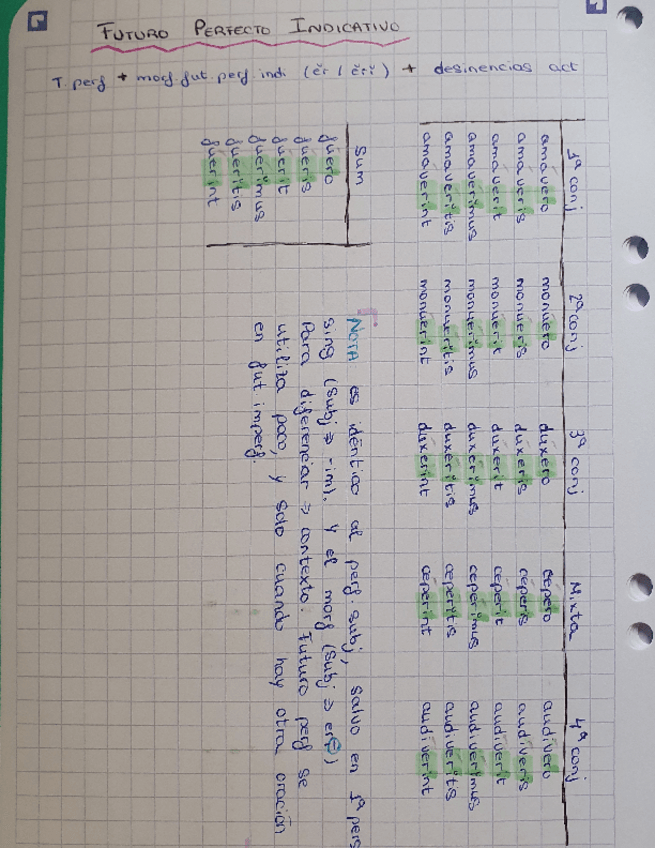 FUTURO PERFECTO INDICATIVO
T. perf + morf. fut. perf. indi (ĕr / ĕrĭ) + desinencias act
1ª conj 2ª conj 3ª conj Mixta 4ª conj
amávero monúero dúxero cépero audívero
amáveris monúeris dúxeris céperis audíveris
amáverit monúerit dúxerit céperit audíverit
amavérimus monuérimus duxérimus cepérimus audivérimus
amavéritis monuéritis duxéritis cepéritis audivéritis
amáverint monúerint dúxerint céperint audíverint
Sum
fúero
fúeris
fúerit
fuérimus
fuéritis
fúerint
NOTA es idéntico al perf. subj, salvo en 1ª pers
sing (subj ⇒ -im), y el morf (subj ⇒ erī)
Para diferenciar ⇒ contexto. Futuro perf se
utiliza poco, y solo cuando hay otra oración
en fut. imperf.